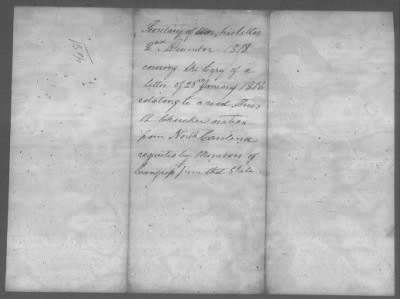 Secretary of War, his letter
2nd December 1818
covering the Copy of a
letter of 23rd January 1816
relating to a road thro
the Cherokee nation
from North Carolina
requested by Members of
Congress from that State